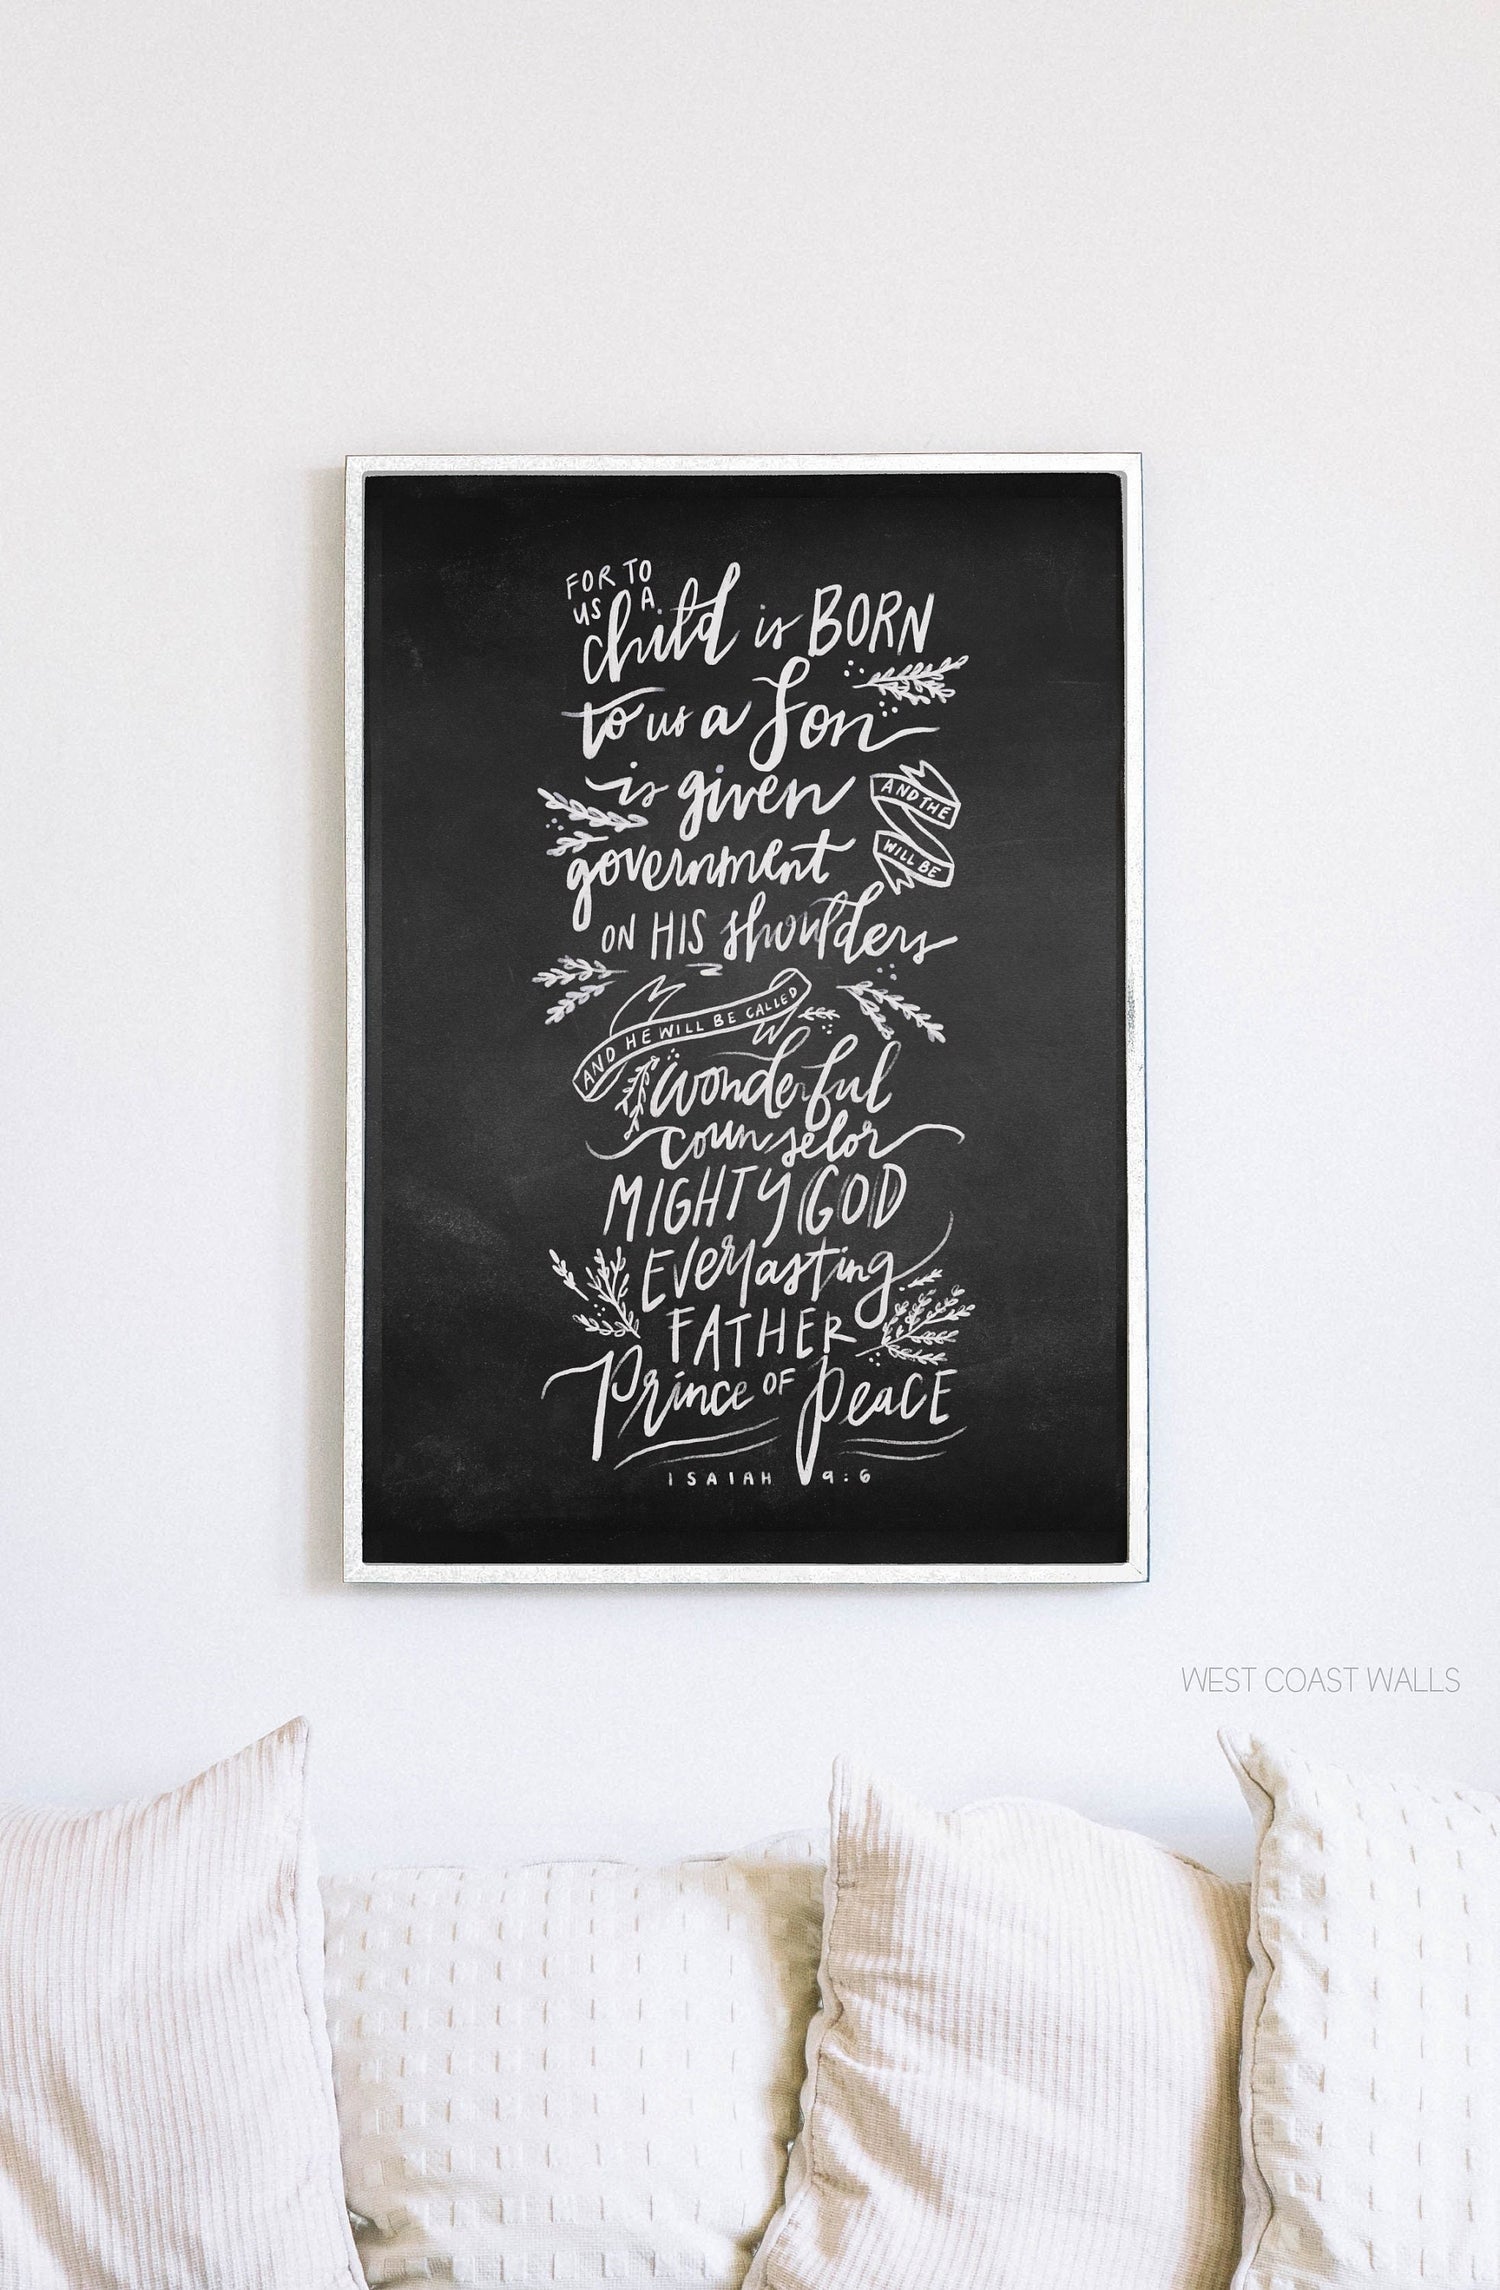 FOR TO
US A
child is BORN
to us a Son
is given
AND THE
government
WILL BE
ON HIS shoulders
AND HE WILL BE CALLED
wonderful
counselor
MIGHTY GOD
Everlasting
FATHER
Prince OF Peace
ISAIAH 9:6
WEST COAST WALLS